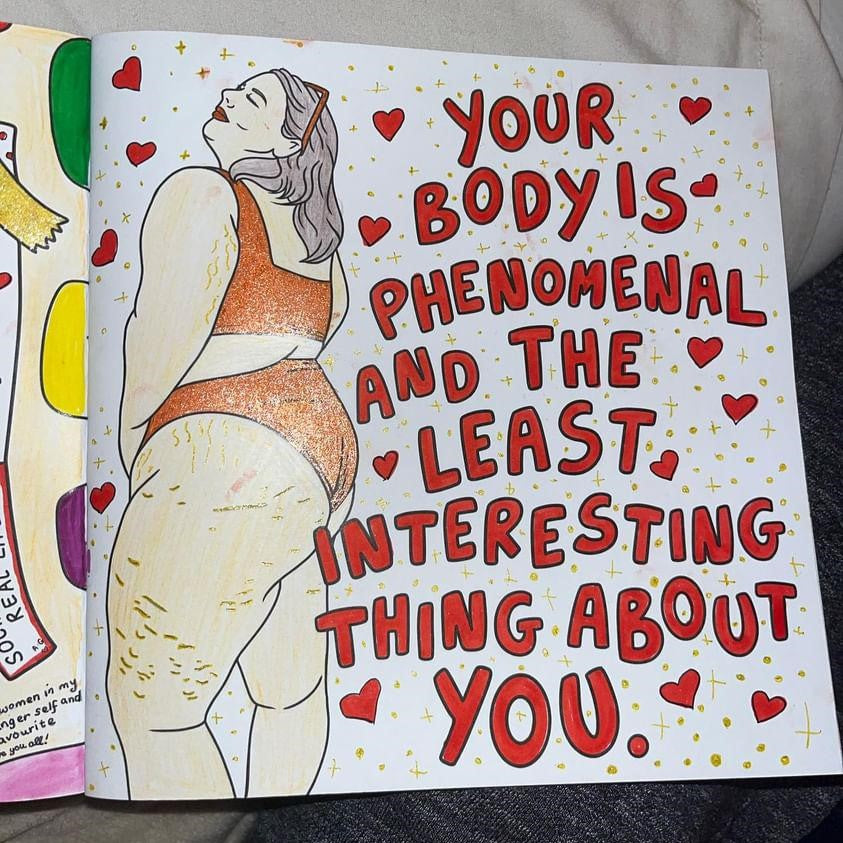 REAL
women in my
self and
you all!
A.G
YOUR
BODY IS
PHENOMENAL
AND THE
LEAST
INTERESTING
THING ABOUT
YOU.